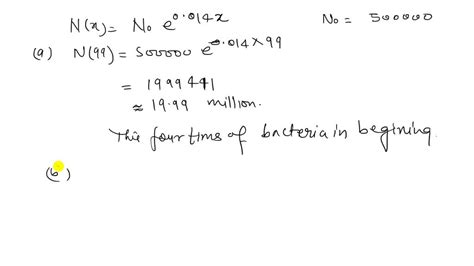 N(x) = N₀ e^0.014x N₀ = 500000
(a) N(99) = 500000 e^0.014×99
= 1999441
≈ 19.99 million.
This four tims of bacteria in begining.
(b)